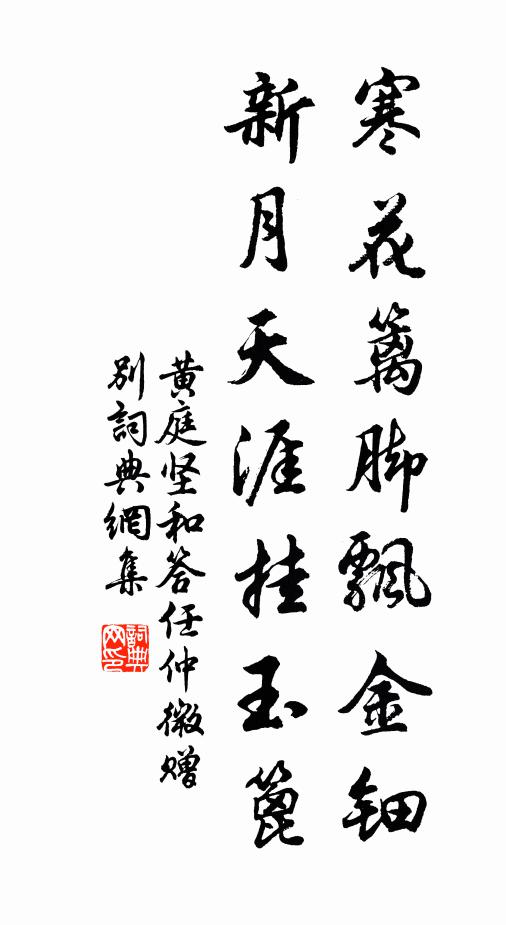 寒花篱脚飘金钿
新月天涯挂玉篦
黄庭坚和答任仲微赠
别词典网集
词典网印